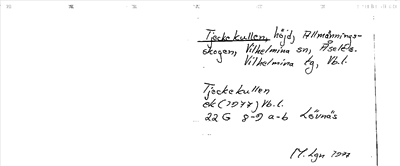 Tjockekullen, höjd, Allmännings-
skogen, Vilhelmina sn, Åsele
Vilhelmina tg, Vb.l.
Tjockekullen
ek (1977) Vb.l.
22 G 8-9 a-b Lövnäs
M. Lgn 1978